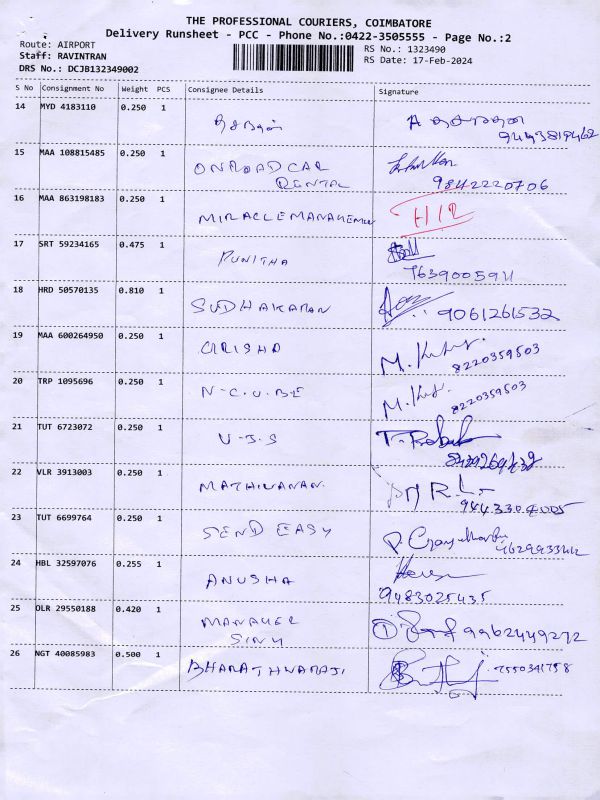 THE PROFESSIONAL COURIERS, COIMBATORE
Delivery Runsheet - PCC - Phone No.:0422-3505555 - Page No.:2
Route: AIRPORT
Staff: RAVINTRAN
DRS No.: DCJB132349002
RS No.: 1323490
RS Date: 17-Feb-2024
S No Consignment No Weight PCS Consignee Details Signature
14 MYD 4183110 0.250 1
15 MAA 108815485 0.250 1 ONROADCAR RENTAL 9842220706
16 MAA 863198183 0.250 1 MIRACLEMANAGEMEN
17 SRT 59234165 0.475 1 PUNITHA
18 HRD 50570135 0.810 1 SUDHAKARAN 9061261532
19 MAA 600264950 0.250 1 8220359503
20 TRP 1095696 0.250 1 N-C.U.BE 8220359503
21 TUT 6723072 0.250 1
22 VLR 3913003 0.250 1 MATHIVANAN.
23 TUT 6699764 0.250 1 SEND EASY
24 HBL 32597076 0.255 1 ANUSHA 9483025435
25 OLR 29550188 0.420 1 9962449272
26 NGT 40085983 0.500 1 7550341758